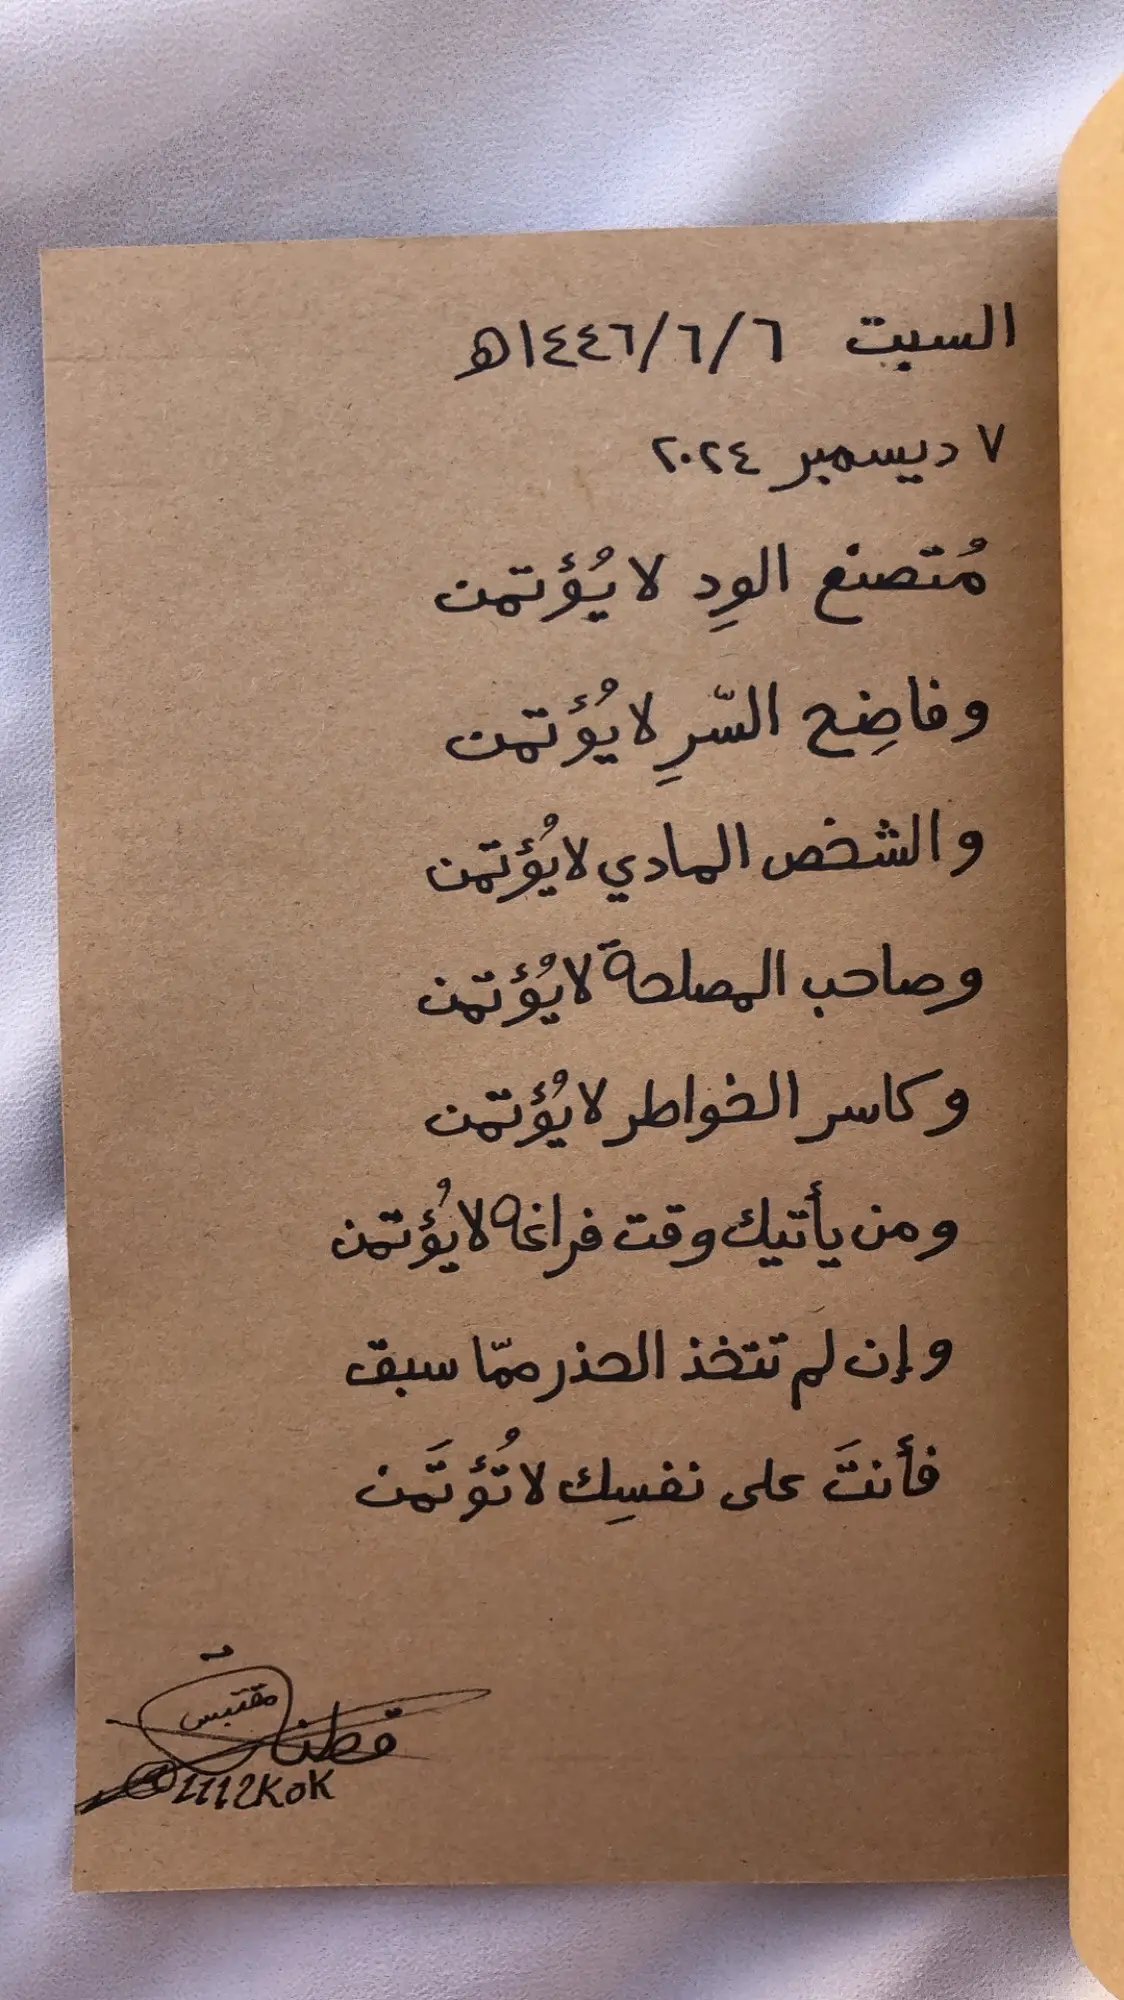 السبت ٦/٦/١٤٤٦ه
٧ ديسمبر ٢٠٢٤
مُتصنع الودِ لا يُؤتمن
وفاضِح السّرِ لا يُؤتمن
والشخص المادي لا يُؤتمن
وصاحب المصلحة لا يُؤتمن
وكاسر الخواطر لا يُؤتمن
ومن يأتيك وقت فراغه لا يُؤتمن
وإن لم تتخذ الحذر ممّا سبق
فأنتَ على نفسِك لا تُؤتَمن
مقتبس
قطنان
@1112KOK